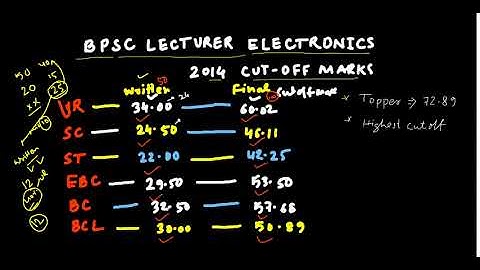 BPSC LECTURER ELECTRONICS
2014 CUT-OFF MARKS
written 50 Final cutoff mark
UR — 34.00 — 60.02
SC — 24.50 — 46.11
ST — 22.00 — 42.25
EBC — 29.50 — 53.50
BC — 32.50 — 57.68
BCL — 30.00 — 50.89
* Topper ⇒ 72.89
* Highest cutoff
50
20
15
25
written
12
12